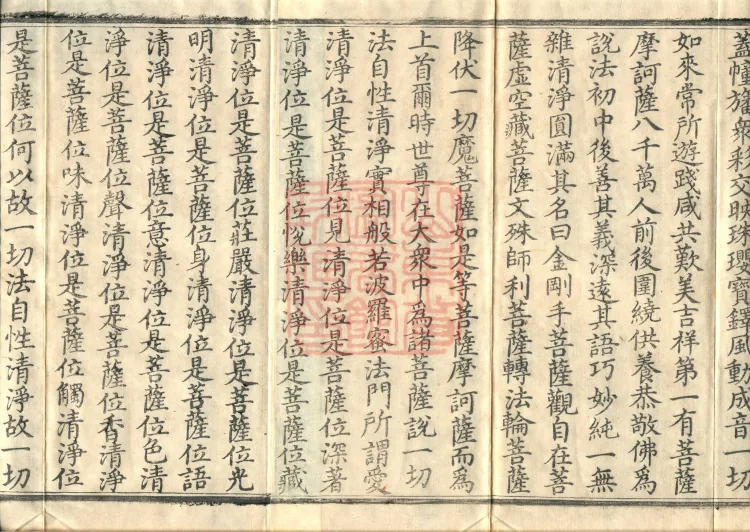 蓋幢旛眾彩交映珠瓔寶鐸風動成音一切
如來常所遊踐咸共歎美吉祥第一有菩薩
摩訶薩八千萬人前後圍繞供養恭敬佛為
說法初中後善其義深遠其語巧妙純一無
雜清淨圓滿其名曰金剛手菩薩觀自在菩
薩虛空藏菩薩文殊師利菩薩轉法輪菩薩
降伏一切魔菩薩如是等菩薩摩訶薩而為
上首爾時世尊在大眾中為諸菩薩說一切
法自性清淨實相般若波羅蜜法門所謂愛
清淨位是菩薩位見清淨位是菩薩位深著
清淨位是菩薩位悅樂清淨位是菩薩位藏
清淨位是菩薩位莊嚴清淨位是菩薩位光
明清淨位是菩薩位身清淨位是菩薩位語
清淨位是菩薩位意清淨位是菩薩位色清
淨位是菩薩位聲清淨位是菩薩位香清淨
位是菩薩位味清淨位是菩薩位觸清淨位
是菩薩位何以故一切法自性清淨故一切